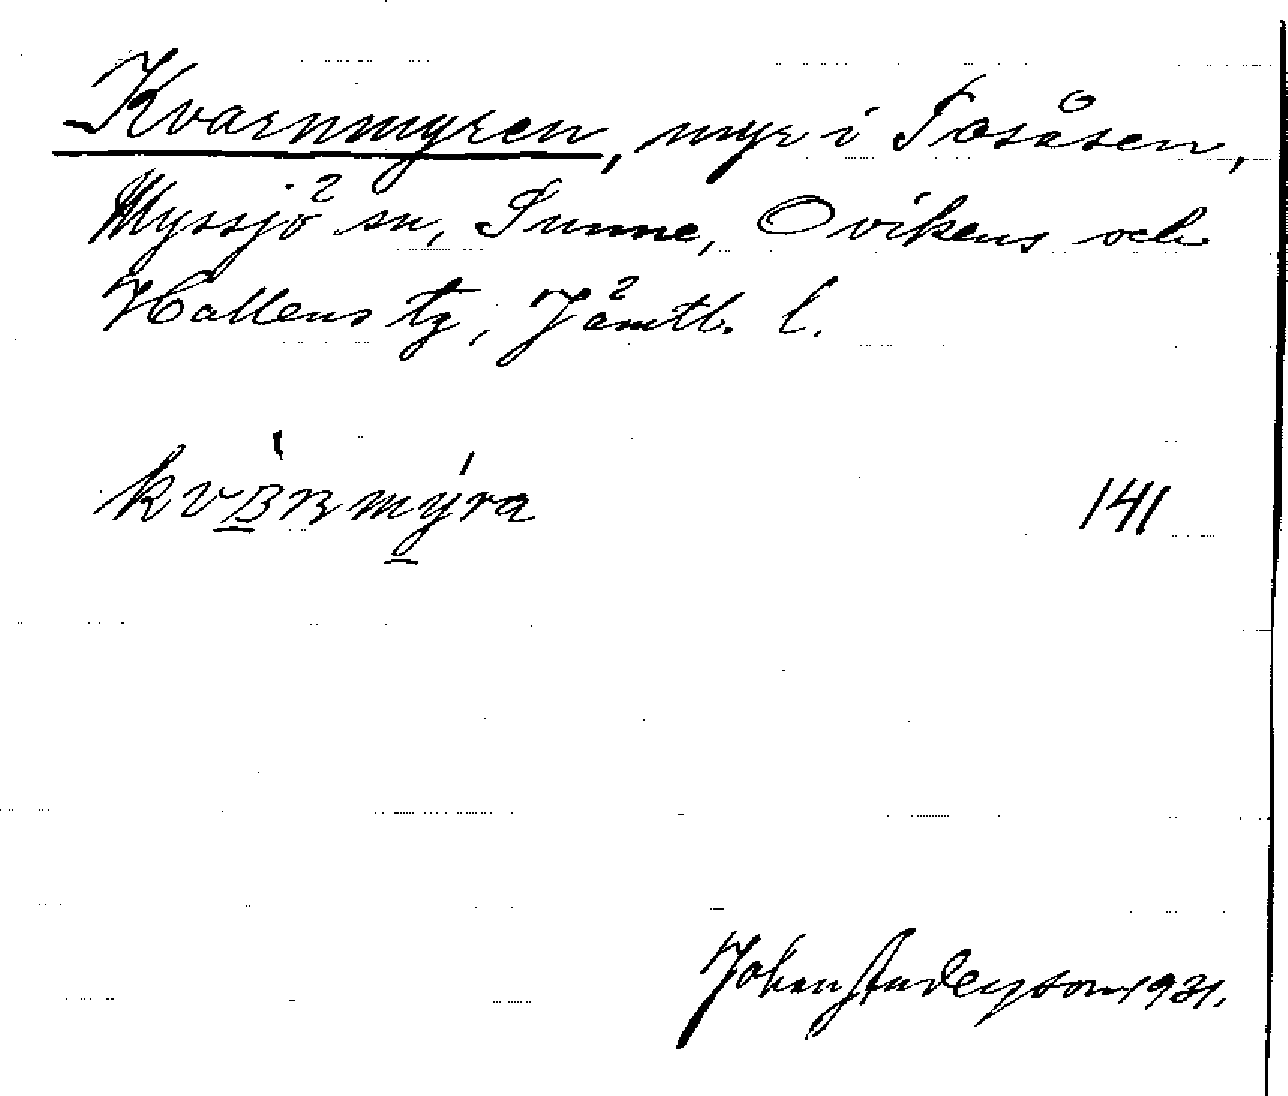 Kvarnmyren, myr i Tosåsen,
Myssjö sn, Sunne, Ovikens och
Hallens tg, Jämtl. l.
kvä̀rnmýra 141
Johan Anderson 1931.